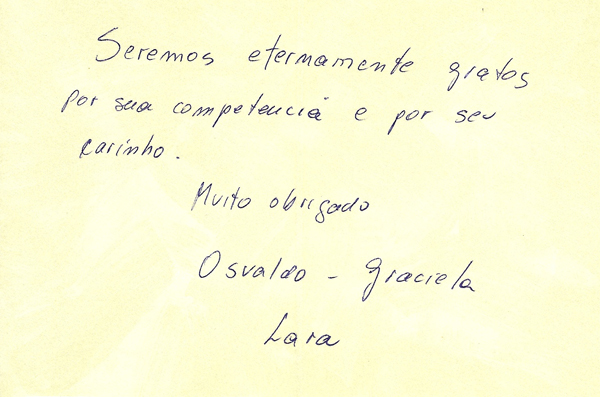 Seremos eternamente gratos
por sua competencia e por seu
carinho.
Muito obrigado
Osvaldo - Graciela
Lara